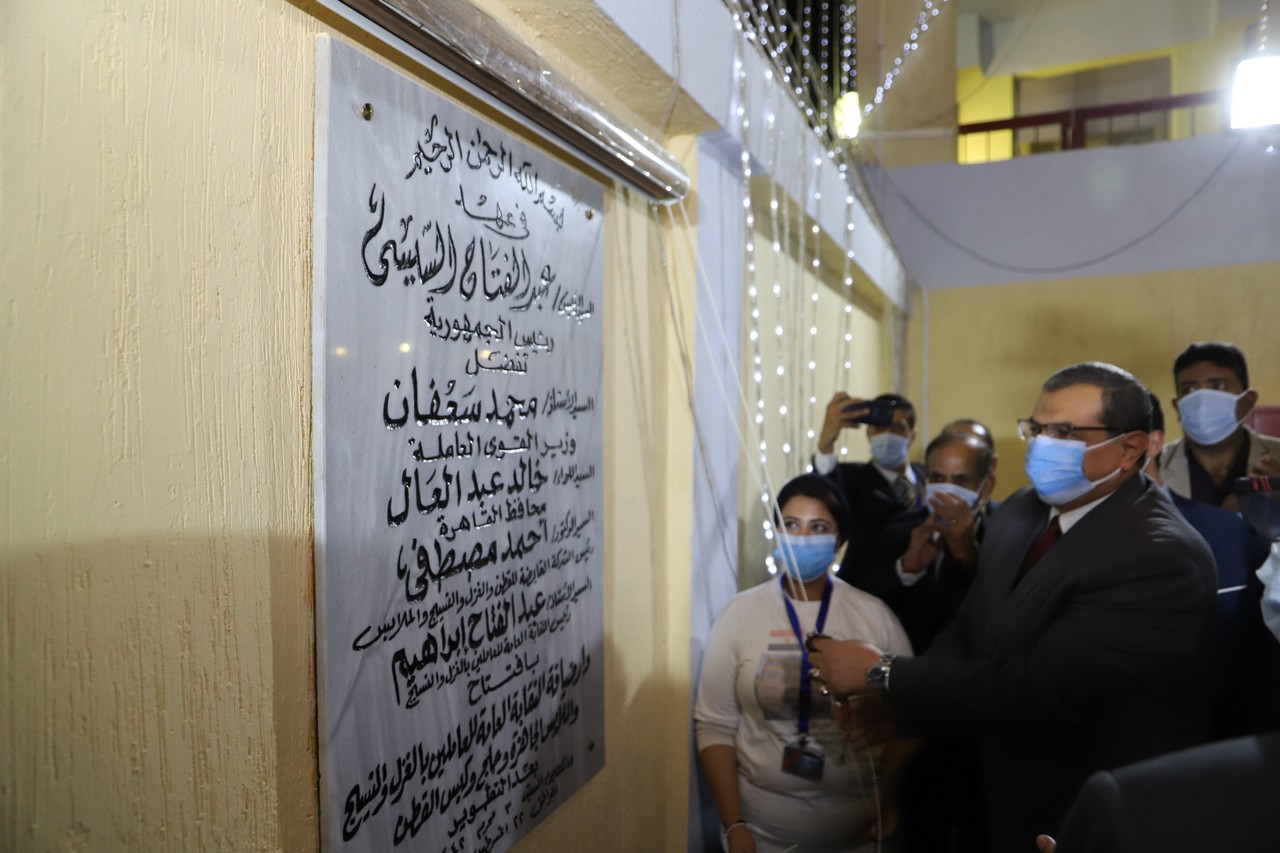 بسم الله الرحمن الرحيم
في عهد
السيد الرئيس/ عبد الفتاح السيسي
رئيس الجمهورية
تفضل
السيد الأستاذ/ محمد سعفان
وزير القوى العاملة
السيد اللواء/ خالد عبد العال
محافظ القاهرة
السيد الدكتور/ أحمد مصطفى
رئيس الشركة القابضة للقطن والغزل والنسيج والملابس
السيد الأستاذ/ عبد الفتاح إبراهيم
رئيس النقابة العامة للعاملين بالغزل والنسيج
بافتتاح
دار ضيافة النقابة العامة للعاملين بالغزل والنسيج
والملابس الجاهزة وحلج وكبس القطن
بعد التطوير
٣ محرم
الموافق ٢٢ أغسطس